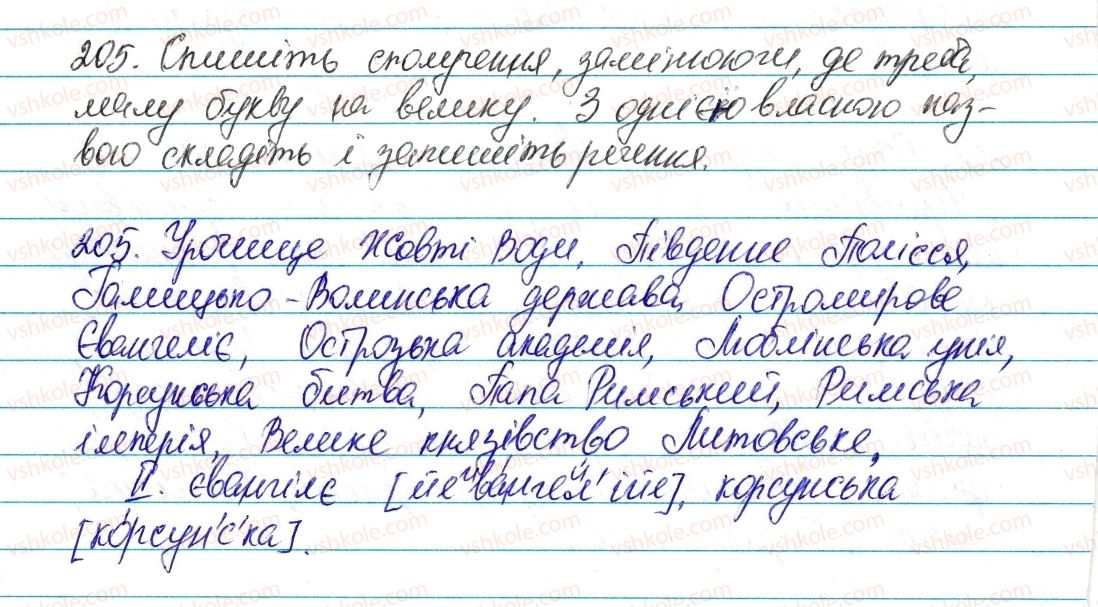 205. Спишіть сполучення, замінюючи, де треба,
малу букву на велику. З однією власною наз-
вою складіть і запишіть речення.
205. Урочище Жовті Води, Південне Полісся,
Галицько-Волинська держава, Остромирове
Євангеліє, Острозька академія, Люблінська унія,
Корсунська битва, Папа Римський, Римська
імперія, Велике князівство Литовське,
II. євангіліє [йеиванген'ійе], корсунська
[корсун'с'ка].